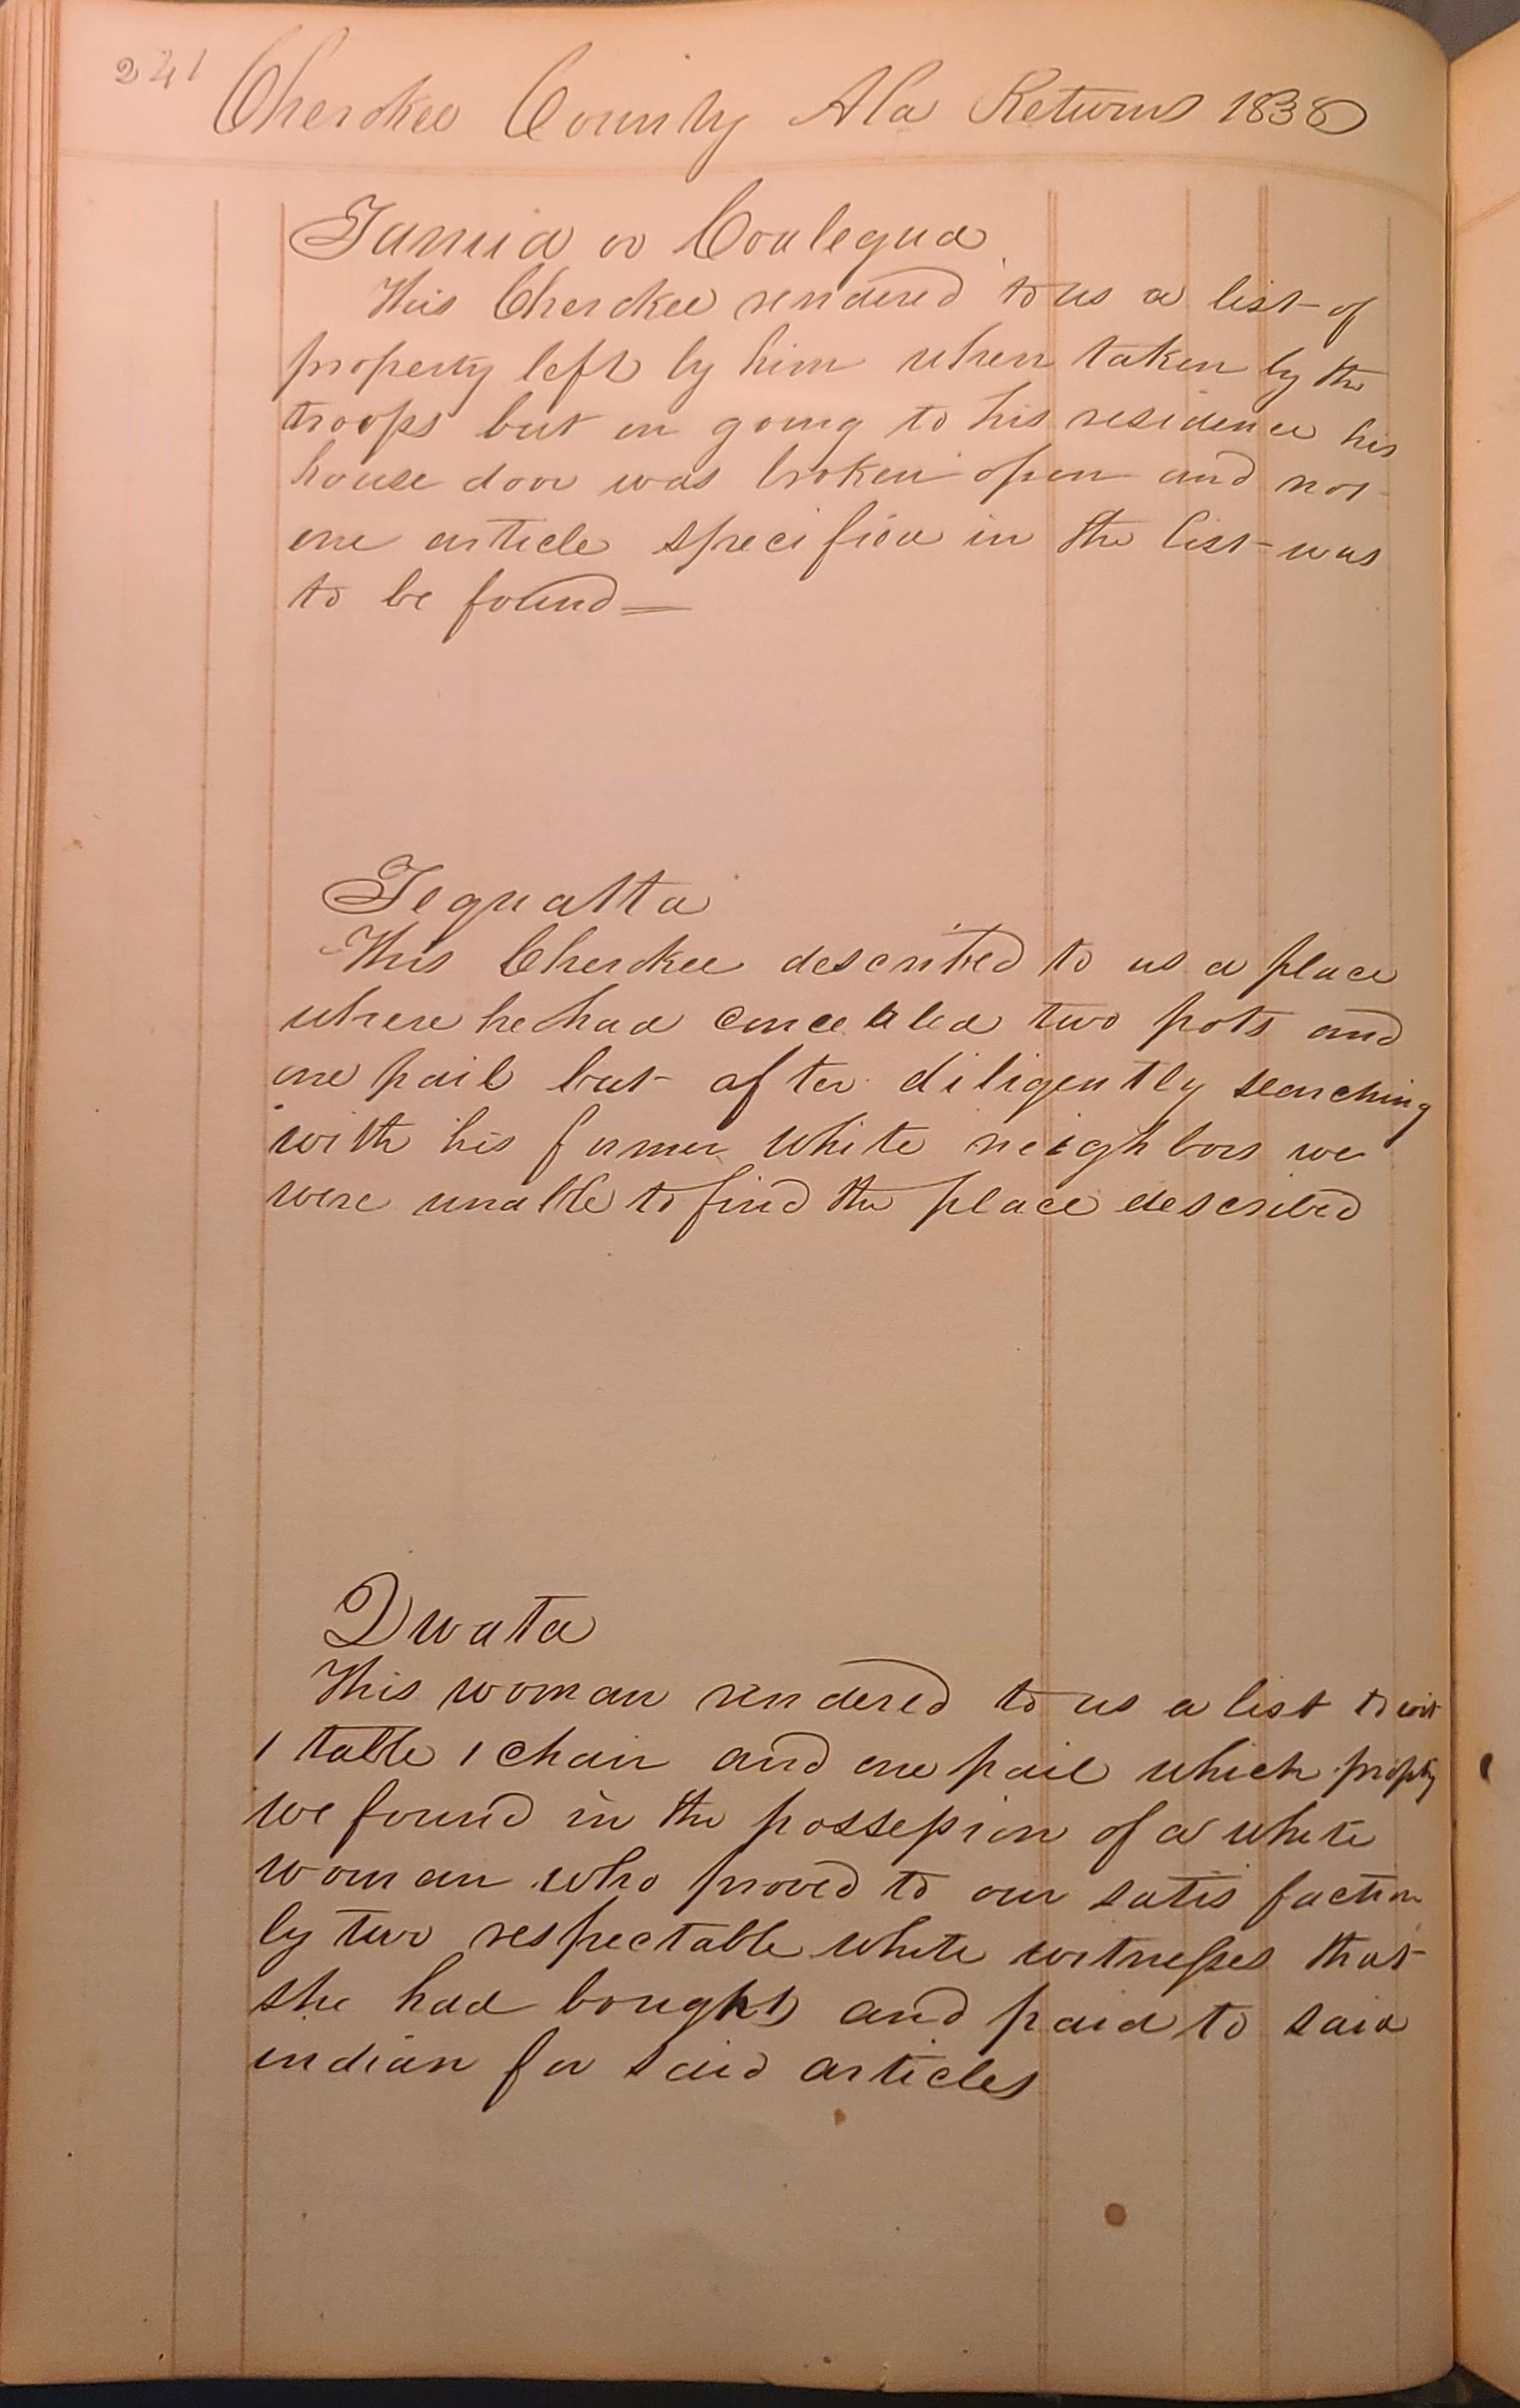 241
Cherokee County Ala Returns 1838
Tamia or Coulegua
This Cherokee rendered to us a list of
property left by him when taken by the
troops but on going to his residence his
house door was broken open and not
one article specified in the list was
to be found
Tequatta
This Cherokee described to us a place
where he had concealed two pots and
one pail but after diligently searching
with his former white neighbors we
were unable to find the place described
Dwata
This woman rendered to us a list to wit
1 table 1 chair and one pail which propty
we found in the possession of a white
woman who proved to our satisfaction
by two respectable white witnesses that
she had bought and paid to said
indian for said articles